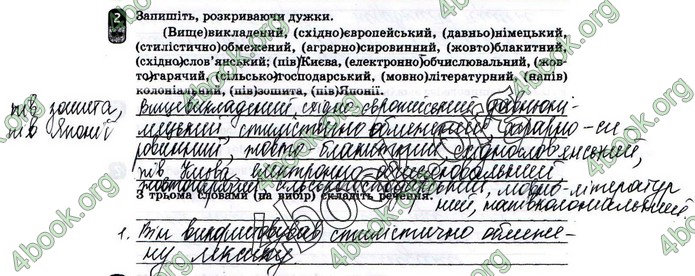 2 Запишіть, розкриваючи дужки.
(Вище)викладений, (східно)європейський, (давньо)німецький,
(стилістично)обмежений, (аграрно)сировинний, (жовто)блакитний,
(східно)слов'янський; (пів)Києва, (електронно)обчислювальний, (жов-
то)гарячий, (сільсько)господарський, (мовно)літературний, (напів)
колоніальний, (пів)зошита, (пів)Японії.
пів зошита, вищевикладений, східно-європейський, давньоні-
пів Японії мецький, стилістично обмежений, аграрно-си
ровинний, жовто-блакитний, східнослов'янський,
пів Києва, електронно-обчислювальний
жовтогарячий, сільськогосподарський, мовно-літератур
З трьома словами (на вибір) складіть речення.
ний, напівколоніальний.
1. Він використовував стилістично обмеже-
ну лексику
4book.org